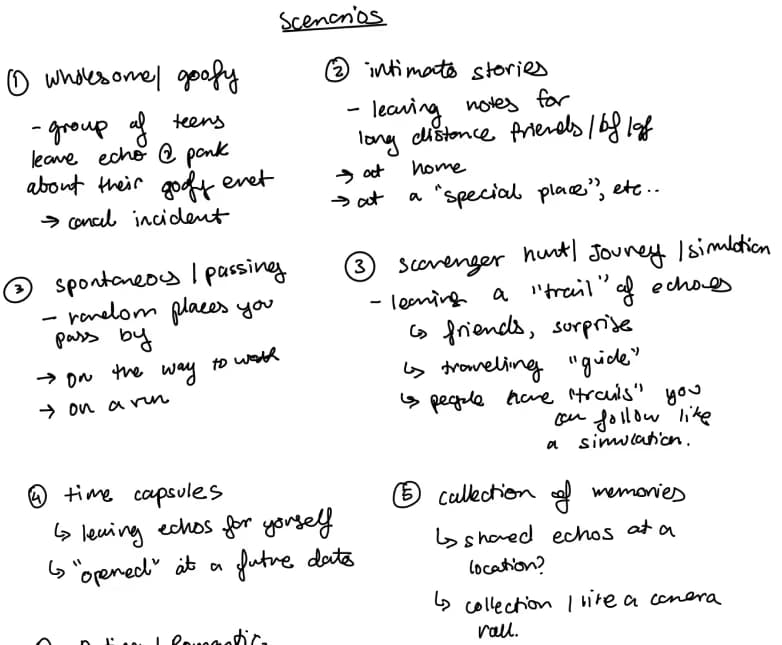 Scenarios
① wholesome/ goofy
- group of teens
leave echo @ park
about their goofy event
→ canal incident
② intimate stories
- leaving notes for
long distance friends/bf/gf
→ at home
→ at a "special place", etc..
③ spontaneous / passing
- random places you
pass by
→ on the way to work
→ on a run
③ scavenger hunt/ Journey /simulation
- leaving a "trail" of echoes
↳ friends, surprise
↳ traveling "guide"
↳ people have "trails" you
can follow like
a simulation.
④ time capsules
↳ leaving echos for yourself
↳ "opened" at a future date
⑤ collection of memories
↳ shared echos at a
location?
↳ collection / like a camera
roll.